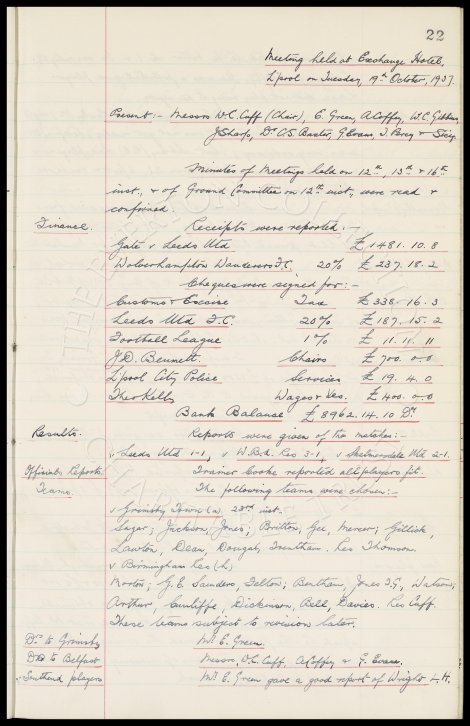 22
Meeting held at Exchange Hotel,
L'pool on Tuesday, 19th October, 1937.
Present:- Messrs W.C. Cuff (Chair), E. Green, A. Coffey, W.C. Gibbins,
J. Sharp, Dr C.S. Baxter, G. Evans, T. Percy & Secy
Minutes of Meetings held on 12th, 13th & 16th
inst., & of Ground Committee on 12th inst., were read &
confirmed
Finance. Receipts were reported:-
Gate v Leeds Utd £1481. 10. 8
Wolverhampton Wanderers F.C. 20% £237. 18. 2
Cheques were signed for:-
Customs & Excise Tax £338. 16. 3
Leeds Utd F.C. 20% £187. 15. 2
Football League 1% £11. 11. 11
J.D. Bennett. Chairs £700. 0. 0
L'pool City Police Services £19. 4. 0
Theo Kelly Wages &c £400. 0. 0
Bank Balance £8962. 14. 10 Dr
Results. Reports were given of the matches:-
v Leeds Utd 1-1, v W.B.A. Res 3-1, v Skelmersdale Utd 2-1.
Officials Reports. Trainer Cooke reported all players fit.
Teams. The following teams were chosen:-
v Grimsby Town (a) 23rd inst.
Sagar; Jackson, Jones; Britton, Gee, Mercer; Gillick,
Lawton, Dean, Dougal, Trentham. Res Thomson.
v Birmingham Res (h)
Morton; G.E. Saunders, Felton; Bentham, Jones T.G., Watson;
Arthur, Cunliffe, Dickinson, Bell, Davies. Res Cuff.
These teams subject to revision later.
Dr to Grimsby Mr E. Green.
Do to Belfast Messrs W.C. Cuff, A. Coffey & G. Evans.
Southend players Mr E. Green gave a good report of Wright L.H.